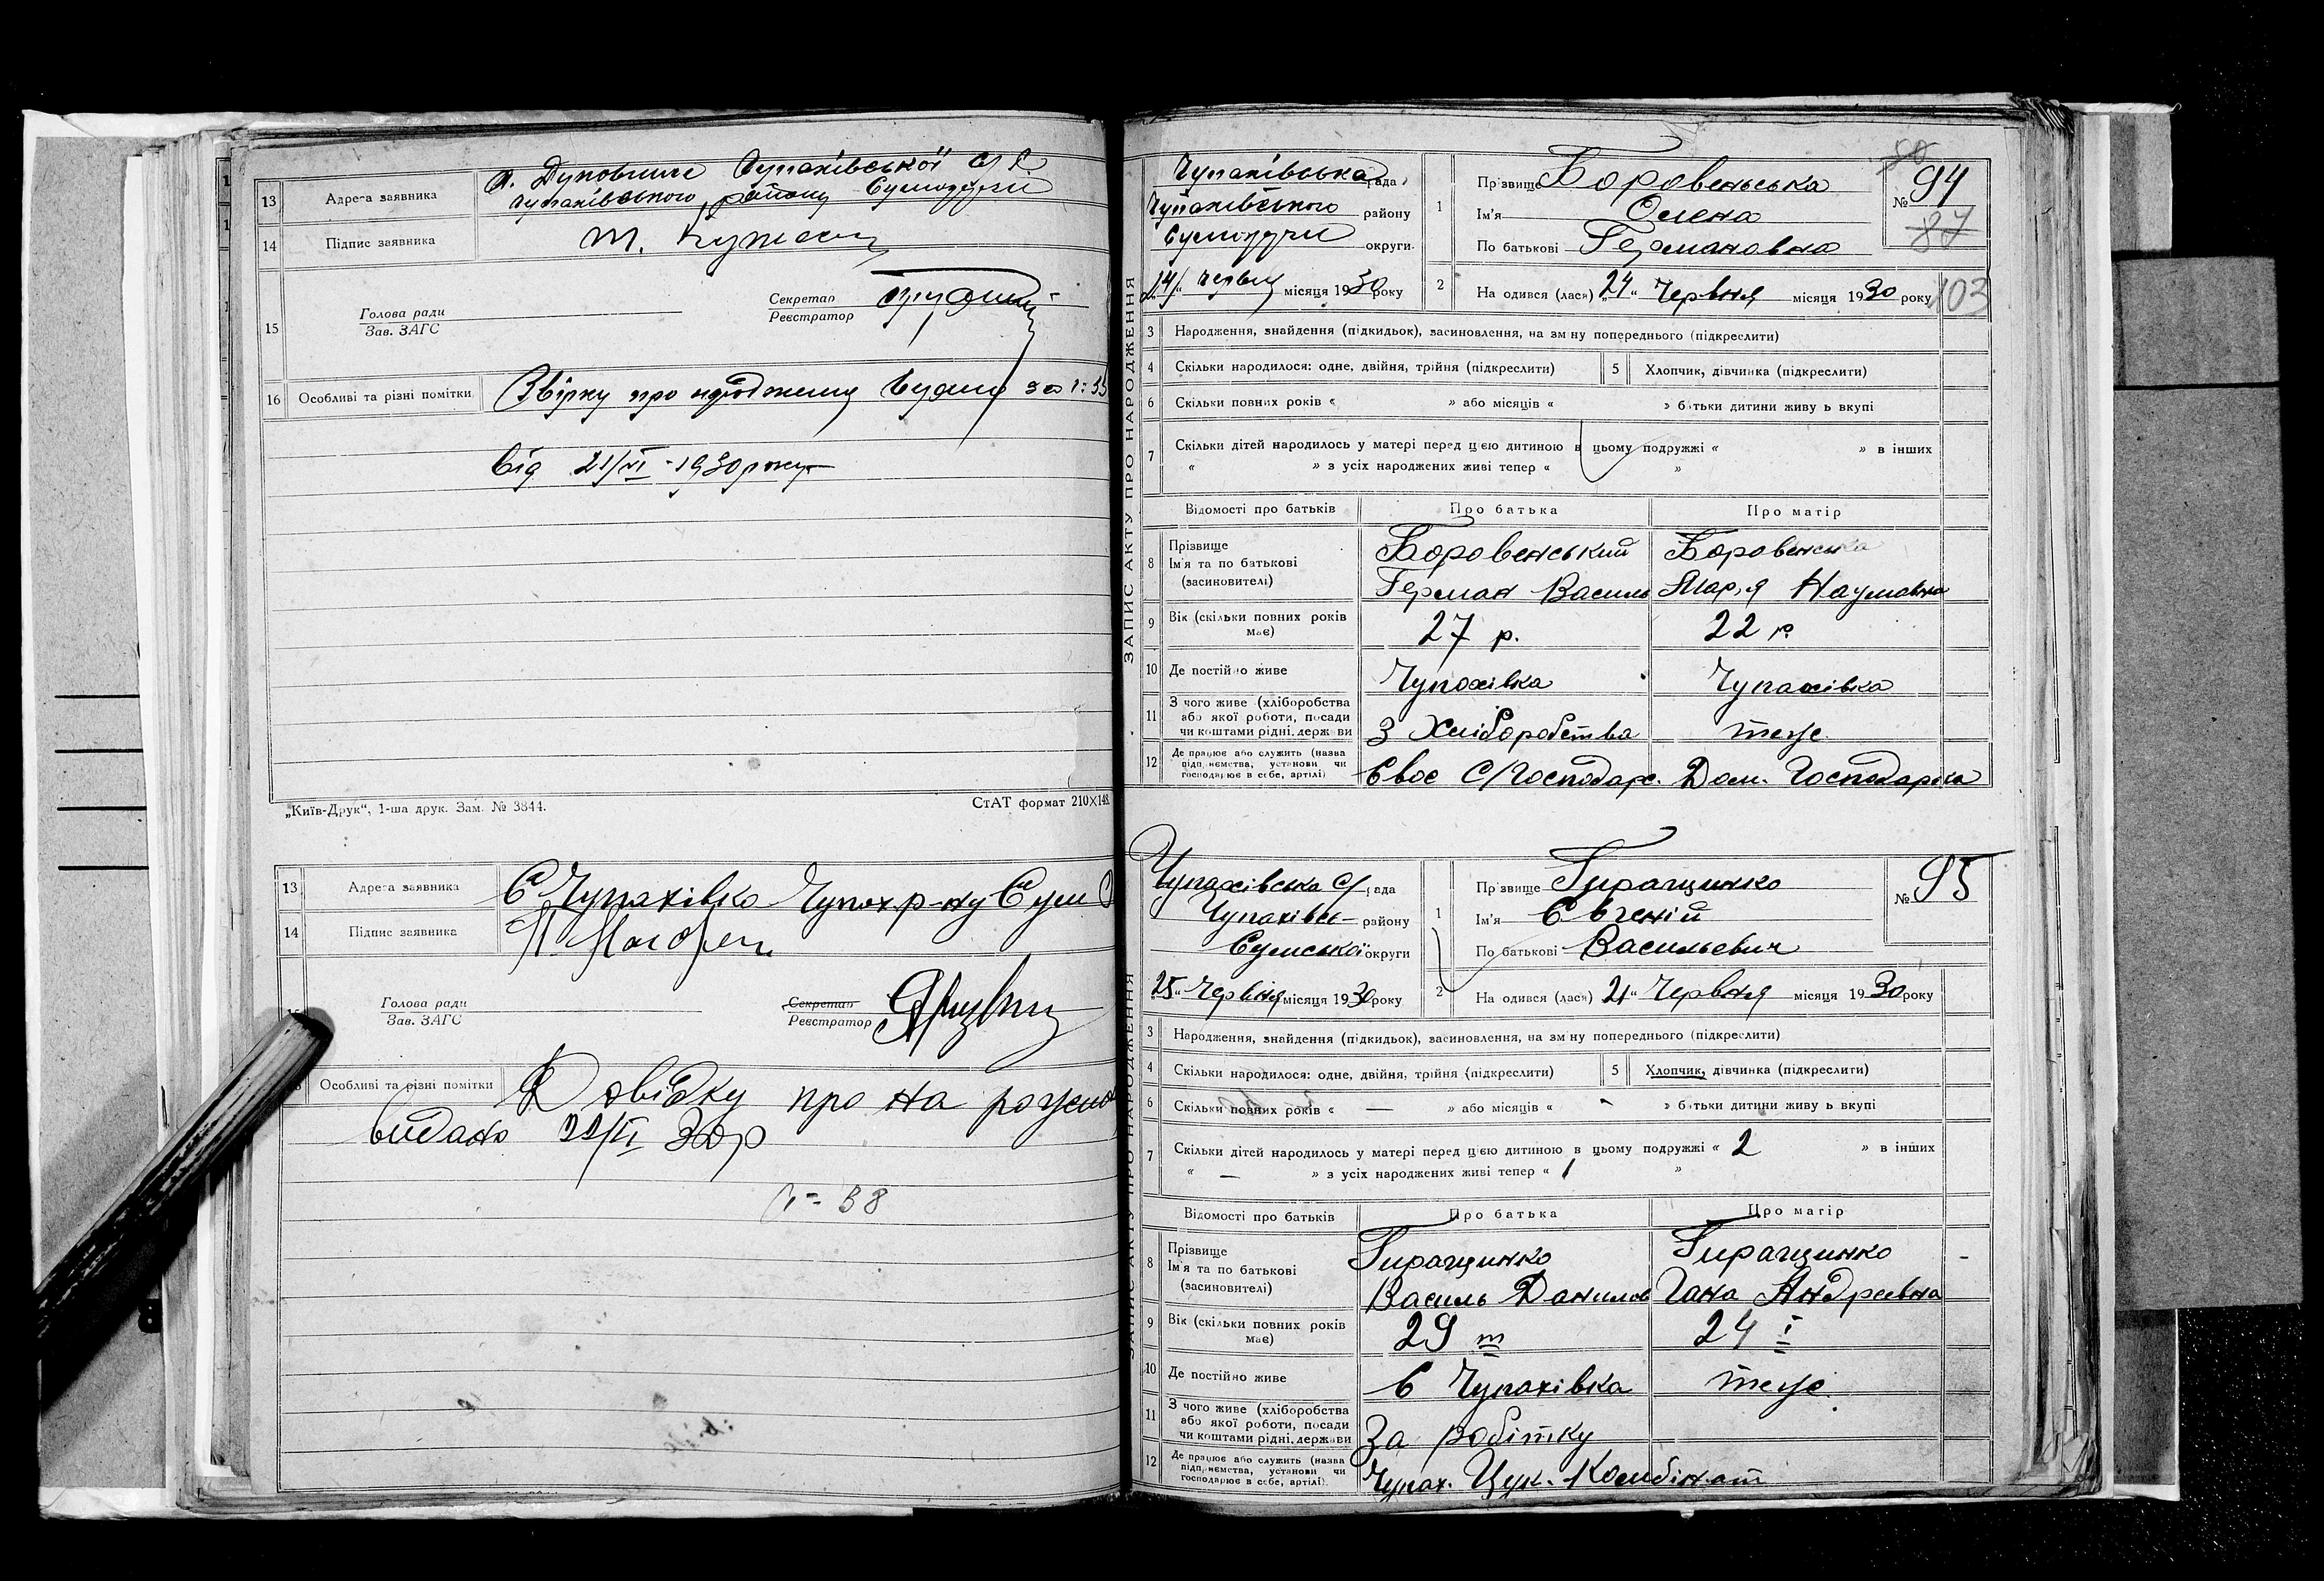 13 Адреса заявника
Чупахівської С/Р.
Чупахівського району Сумокруги
14 Підпис заявника
15 Голова ради
Зав. ЗАГС
Секретар
Реєстратор
16 Особливі та різні помітки
про народження видано за
від 21/VI - 1930 року
„Київ-Друк“, 1-ша друк. Зам. № 3844.
СтАТ формат 210×148
13 Адреса заявника С Чупахівка Чупах р-ну Сум
14 Підпис заявника
Голова ради
Зав. ЗАГС
Секретар
Реєстратор
Особливі та різні помітки Довідку про на
видано 30р
38
ЗАПИС АКТУ ПРО НАРОДЖЕННЯ
Чупахівська рада
Чупахівського району
Сумокруги округи
червня місяця 1930 року
1 Прізвище Боровеньська
Ім'я Олена
По батькові Германовна
№ 94
87
103
2 Народився (лася) „24“ Червня місяця 1930 року
3 Народження, знайдення (підкидьок), засиновлення, на зміну попереднього (підкреслити)
4 Скільки народилося: одне, двійня, трійня (підкреслити)
5 Хлопчик, дівчинка (підкреслити)
6 Скільки повних років « » або місяців « » батьки дитини живуть вкупі
7 Скільки дітей народилось у матері перед цією дитиною в цьому подружжі « » в інших
« » з усіх народжених живі тепер « »
Відомості про батьків
Про батька
Про матір
8 Прізвище
Ім'я та по батькові
(засиновителі)
Боровенський
Герман Василь
Боровенська
Марія Наумовна
9 Вік (скільки повних років має)
27 р.
22 р.
10 Де постійно живе
Чупахівка
Чупахівка
11 З чого живе (хліборобства
або якої роботи, посади
чи коштами рідні, держави
З Хліборобства
теж
12 Де працює або служить (назва
підприємства, установи чи
господарює в себе, артілі)
Своє С/Господарс.
Дом. Господарка
ЗАПИС АКТУ ПРО НАРОДЖЕННЯ
Чупахівська С/рада
Чупахівс- району
Сумської округи
25“ Червня місяця 1930 року
1 Прізвище Гиращинко
Ім'я Євгеній
По батькові Васильевич
№ 95
2 Народився (лася) 21“ Червня місяця 1930 року
3 Народження, знайдення (підкидьок), засиновлення, на зміну попереднього (підкреслити)
4 Скільки народилося: одне, двійня, трійня (підкреслити)
5 Хлопчик, дівчинка (підкреслити)
6 Скільки повних років « — » або місяців « - » батьки дитини живуть вкупі
7 Скільки дітей народилось у матері перед цією дитиною в цьому подружжі « 2 » в інших
« — » з усіх народжених живі тепер « 1 »
Відомості про батьків
Про батька
Про матір
8 Прізвище
Ім'я та по батькові
(засиновителі)
Гиращинко
Василь Данилов
Гиращинко
Гана Андреевна
9 Вік (скільки повних років має)
29
24
10 Де постійно живе
С Чупахівка
теж
11 З чого живе (хліборобства
або якої роботи, посади
чи коштами рідні, держави
За робітку
12 Де працює або служить (назва
підприємства, установи чи
господарює в себе, артілі)
Чупах. Цук. Комбінат